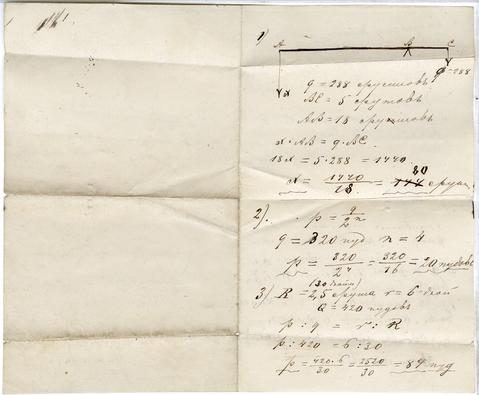 1)
A B C
x q=288
q = 288 фунтовъ
BC = 5 футовъ
AB = 18 футовъ
x · AB = q · BC
18x = 5 · 288 = 1440
x = 1440/18 = 80
2). p = q/2ⁿ
q = 320 пуд n = 4
p = 320/2⁴ = 320/16 = 20 пудовъ
(30 дюйм)
3) R = 2,5 фута r = 6 дюй
Q = 420 пудовъ
p : q = r : R
p : 420 = 6 : 30
p = 420·6/30 = 2520/30 = 84 пуд